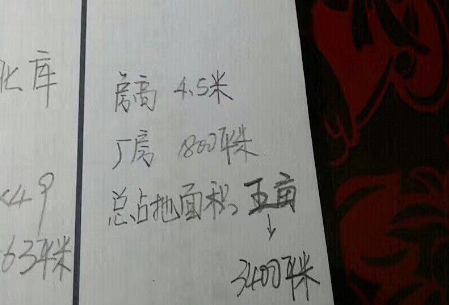 化库
房高 4.5米
厂房 1800平米
总占地面积, 五亩
↓
3400平米
×49
63平米